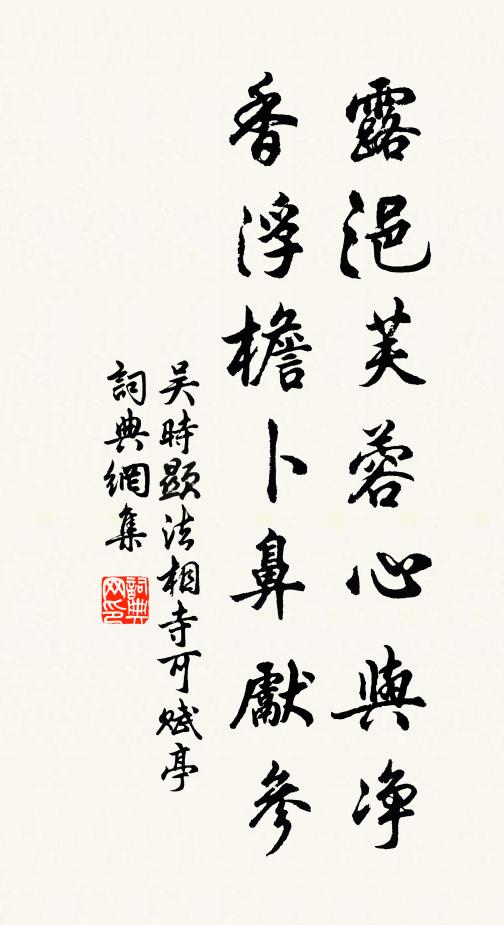 露浥芙蓉心與净
香浮檐卜鼻獻參
吴時顯法相寺可賦亭
詞典網集
詞典網印